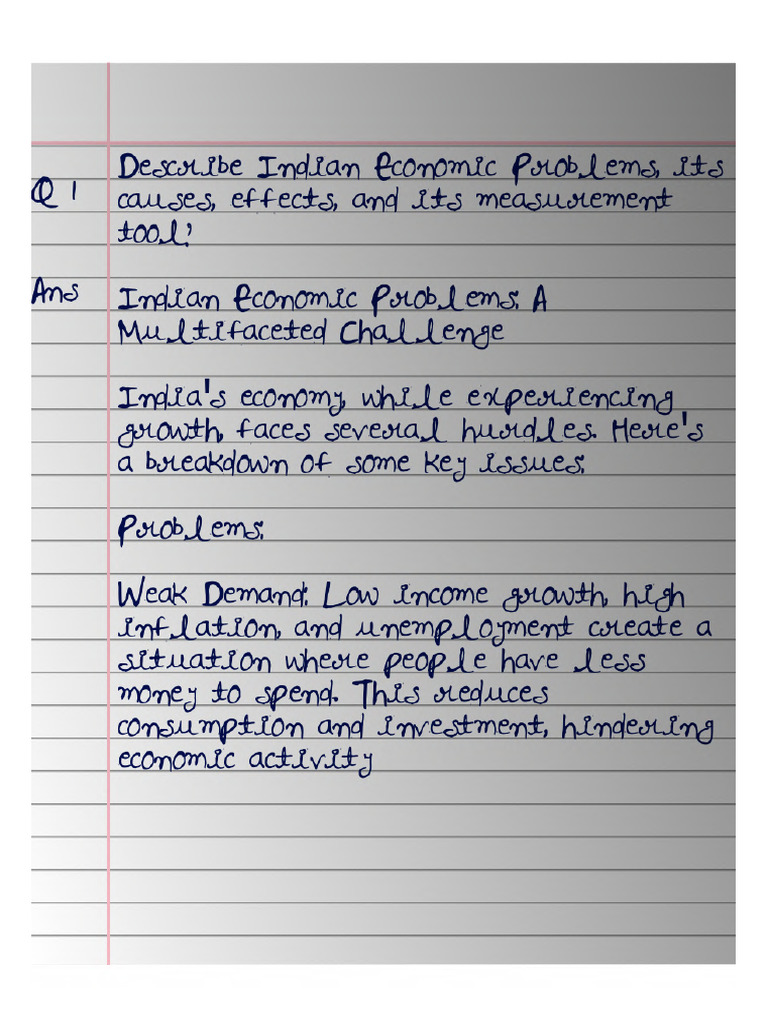 Describe Indian Economic Problems, its
Q 1
causes, effects, and its measurement
tool?
Ans
Indian Economic Problems: A
Multifaceted Challenge
India's economy, while experiencing
growth, faces several hurdles. Here's
a breakdown of some key issues:
Problems:
Weak Demand: Low income growth, high
inflation, and unemployment create a
situation where people have less
money to spend. This reduces
consumption and investment, hindering
economic activity